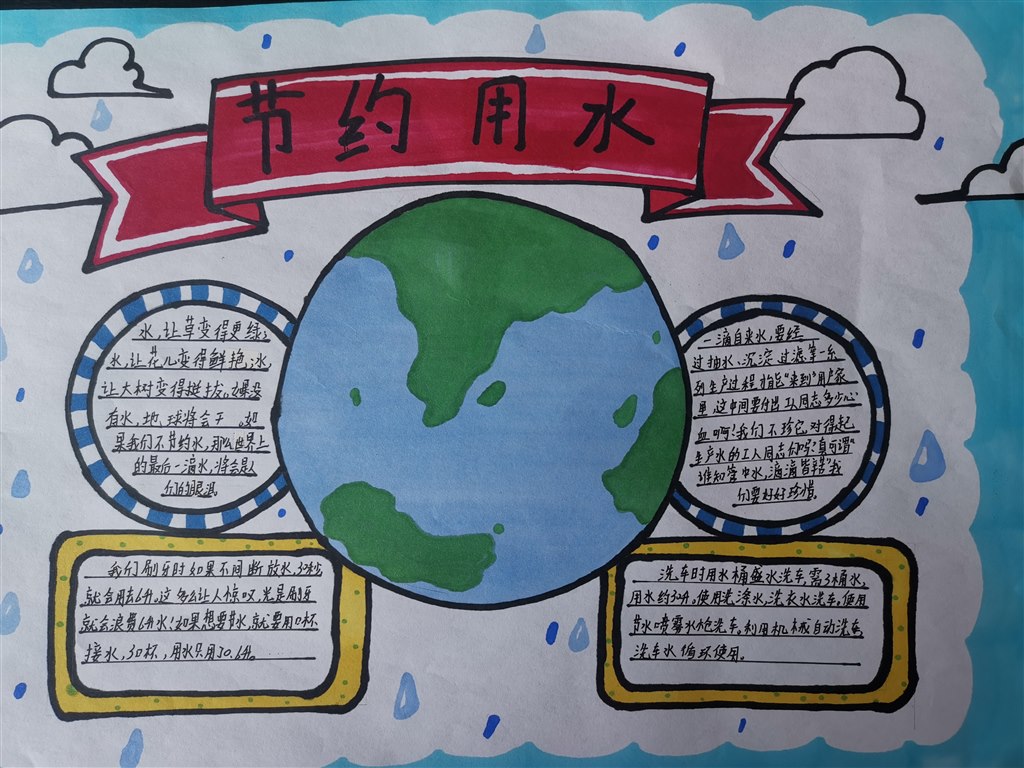 节约用水
水,让草变得更绿;
水,让花儿变得鲜艳;水,
让大树变得挺拔。如果没
有水,地球将会干。如
果我们不节约水,那么世界上
的最后一滴水,将会是人
们的眼泪
一滴自来水,要经
过抽水、沉淀、过滤等一系
列生产过程才能“来到”用户家
里,这中间要付出工人同志多少心
血啊!我们不珍它,对得起
生产水的工人同志们吗?真可谓
“谁知管中水,滴滴皆辛苦”我
们要好好珍惜。
我们刷牙时如果不间断放水,30秒
就会用去6升。这多么让人惊叹,光是刷牙
就会浪费6升水!如果想要节水,就要用口杯
接水,3口杯,用水只用了0.6升。
洗车时用水桶盛水洗车,需3桶水,
用水约30升。使用洗涤水、洗衣水洗车。使用
节水喷雾水枪洗车。利用机械自动洗车,
洗车水循环使用。